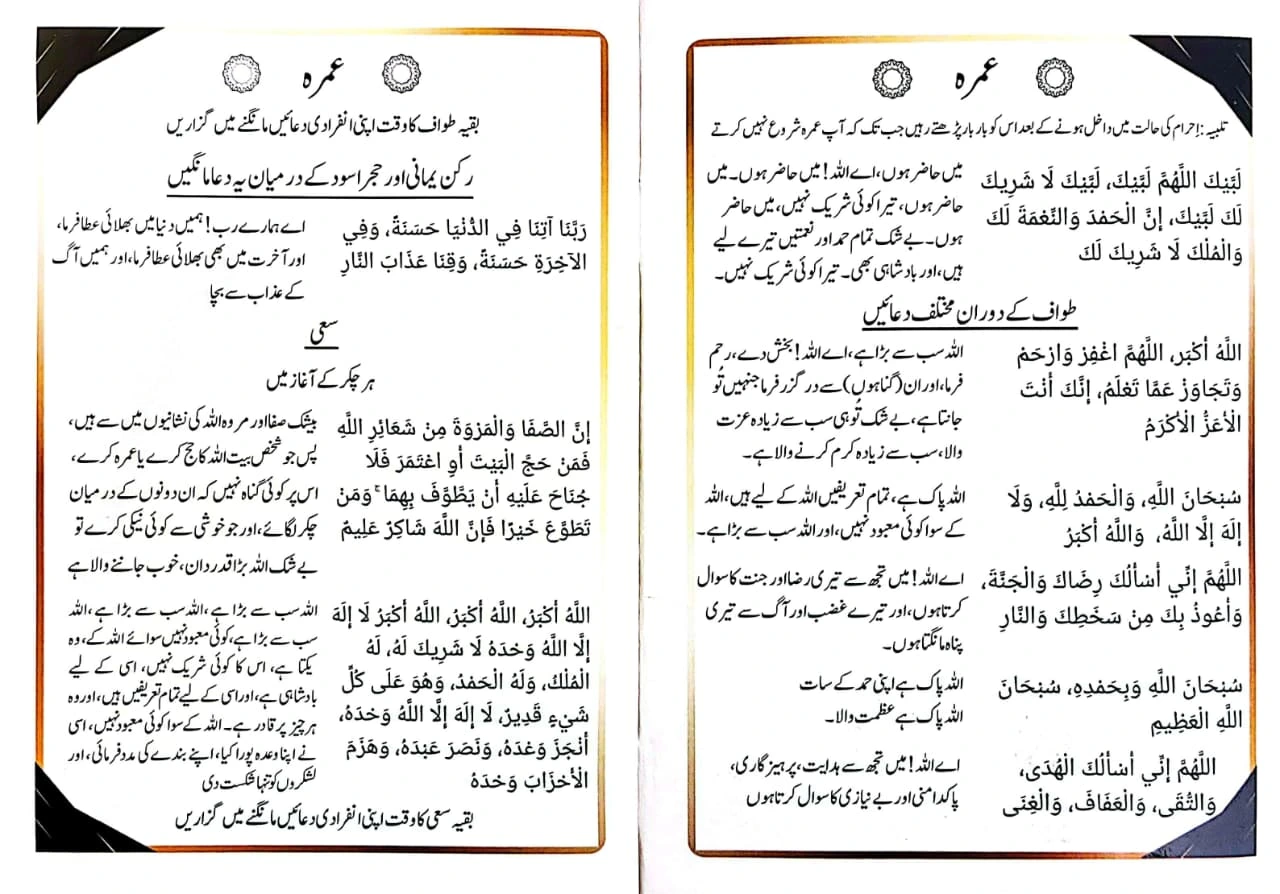 عمرہ
تلبیہ: إحرام کی حالت میں داخل ہونے کے بعد اس کو بار بار پڑھتے رہیں جب تک کہ آپ عمرہ شروع نہیں کرتے
لَبَّيْكَ اللَّهُمَّ لَبَّيْكَ، لَبَّيْكَ لَا شَرِيكَ
لَكَ لَبَّيْكَ، إِنَّ الْحَمْدَ وَالنِّعْمَةَ لَكَ
وَالْمُلْكَ لَا شَرِيكَ لَكَ
میں حاضر ہوں، اے اللہ! میں حاضر ہوں۔ میں
حاضر ہوں، تیرا کوئی شریک نہیں، میں حاضر
ہوں۔ بے شک تمام حمد اور نعمتیں تیرے لیے
ہیں، اور بادشاہی بھی۔ تیرا کوئی شریک نہیں۔
طواف کے دوران مختلف دعائیں
اللَّهُ أَكْبَر، اللَّهُمَّ اغْفِرْ وَارْحَمْ
وَتَجَاوَزْ عَمَّا تَعْلَمُ، إِنَّكَ أَنْتَ
الْأَعَزُّ الْأَكْرَمُ
اللہ سب سے بڑا ہے، اے اللہ! بخش دے، رحم
فرما، اور ان (گناہوں) سے درگزر فرما جنہیں تُو
جانتا ہے، بے شک تُو ہی سب سے زیادہ عزت
والا، سب سے زیادہ کرم کرنے والا ہے۔
سُبْحَانَ اللَّهِ، وَالْحَمْدُ لِلَّهِ، وَلَا
إِلَهَ إِلَّا اللَّهُ، وَاللَّهُ أَكْبَرُ
اللہ پاک ہے، تمام تعریفیں اللہ کے لیے ہیں، اللہ
کے سوا کوئی معبود نہیں، اور اللہ سب سے بڑا ہے۔
اللَّهُمَّ إِنِّي أَسْأَلُكَ رِضَاكَ وَالْجَنَّةَ،
وَأَعُوذُ بِكَ مِنْ سَخَطِكَ وَالنَّارِ
اے اللہ! میں تجھ سے تیری رضا اور جنت کا سوال
کرتا ہوں، اور تیرے غضب اور آگ سے تیری
پناہ مانگتا ہوں۔
سُبْحَانَ اللَّهِ وَبِحَمْدِهِ، سُبْحَانَ
اللَّهِ الْعَظِيمِ
اللہ پاک ہے اپنی حمد کے سات
اللہ پاک ہے عظمت والا۔
اللَّهُمَّ إِنِّي أَسْأَلُكَ الْهُدَى،
وَالتُّقَى، وَالْعَفَافَ، وَالْغِنَى
اے اللہ! میں تجھ سے ہدایت، پرہیزگاری،
پاکدامنی اور بے نیازی کا سوال کرتا ہوں
عمرہ
بقیہ طواف کا وقت اپنی انفرادی دعائیں مانگنے میں گزاریں
رکن یمانی اور حجر اسود کے درمیان یہ دعا مانگیں
رَبَّنَا آتِنَا فِي الدُّنْيَا حَسَنَةً، وَفِي
الآخِرَةِ حَسَنَةً، وَقِنَا عَذَابَ النَّارِ
اے ہمارے رب! ہمیں دنیا میں بھلائی عطا فرما،
اور آخرت میں بھی بھلائی عطا فرما، اور ہمیں آگ
کے عذاب سے بچا
سعی
ہر چکر کے آغاز میں
إِنَّ الصَّفَا وَالْمَرْوَةَ مِنْ شَعَائِرِ اللَّهِ
فَمَنْ حَجَّ الْبَيْتَ أَوِ اعْتَمَرَ فَلَا
جُنَاحَ عَلَيْهِ أَنْ يَطَّوَّفَ بِهِمَا ۚ وَمَنْ
تَطَوَّعَ خَيْرًا فَإِنَّ اللَّهَ شَاكِرٌ عَلِيمٌ
بیشک صفا اور مروہ اللہ کی نشانیوں میں سے ہیں،
پس جو شخص بیت اللہ کا حج کرے یا عمرہ کرے،
اس پر کوئی گناہ نہیں کہ ان دونوں کے درمیان
چکر لگائے، اور جو خوشی سے کوئی نیکی کرے تو
بے شک اللہ بڑا قدردان، خوب جاننے والا ہے
اللَّهُ أَكْبَرُ، اللَّهُ أَكْبَرُ، اللَّهُ أَكْبَرُ لَا إِلَهَ
إِلَّا اللَّهُ وَحْدَهُ لَا شَرِيكَ لَهُ، لَهُ
الْمُلْكُ، وَلَهُ الْحَمْدُ، وَهُوَ عَلَى كُلِّ
شَيْءٍ قَدِيرٌ، لَا إِلَهَ إِلَّا اللَّهُ وَحْدَهُ،
أَنْجَزَ وَعْدَهُ، وَنَصَرَ عَبْدَهُ، وَهَزَمَ
الْأَحْزَابَ وَحْدَهُ
اللہ سب سے بڑا ہے، اللہ سب سے بڑا ہے، اللہ
سب سے بڑا ہے، کوئی معبود نہیں سوائے اللہ کے، وہ
یکتا ہے، اس کا کوئی شریک نہیں، اسی کے لیے
بادشاہی ہے، اور اسی کے لیے تمام تعریفیں ہیں، اور وہ
ہر چیز پر قادر ہے۔ اللہ کے سوا کوئی معبود نہیں، اسی
نے اپنا وعدہ پورا کیا، اپنے بندے کی مدد فرمائی، اور
لشکروں کو تنہا شکست دی
بقیہ سعی کا وقت اپنی انفرادی دعائیں مانگنے میں گزاریں